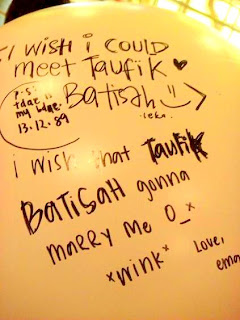 I wish i could
meet Taufik ♥
Batisah :)
-leka.
P.S
my bdae.
13.12.89
i wish that Taufik
BATISAH gonna
marry me O_*
*wink*
Love,
ema